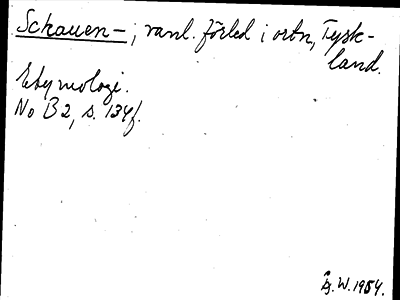 Schauen-; vanl. förled i ortn, Tysk-
land.
Etymologi.
No B 2, s. 134f.
Å. W. 1954.